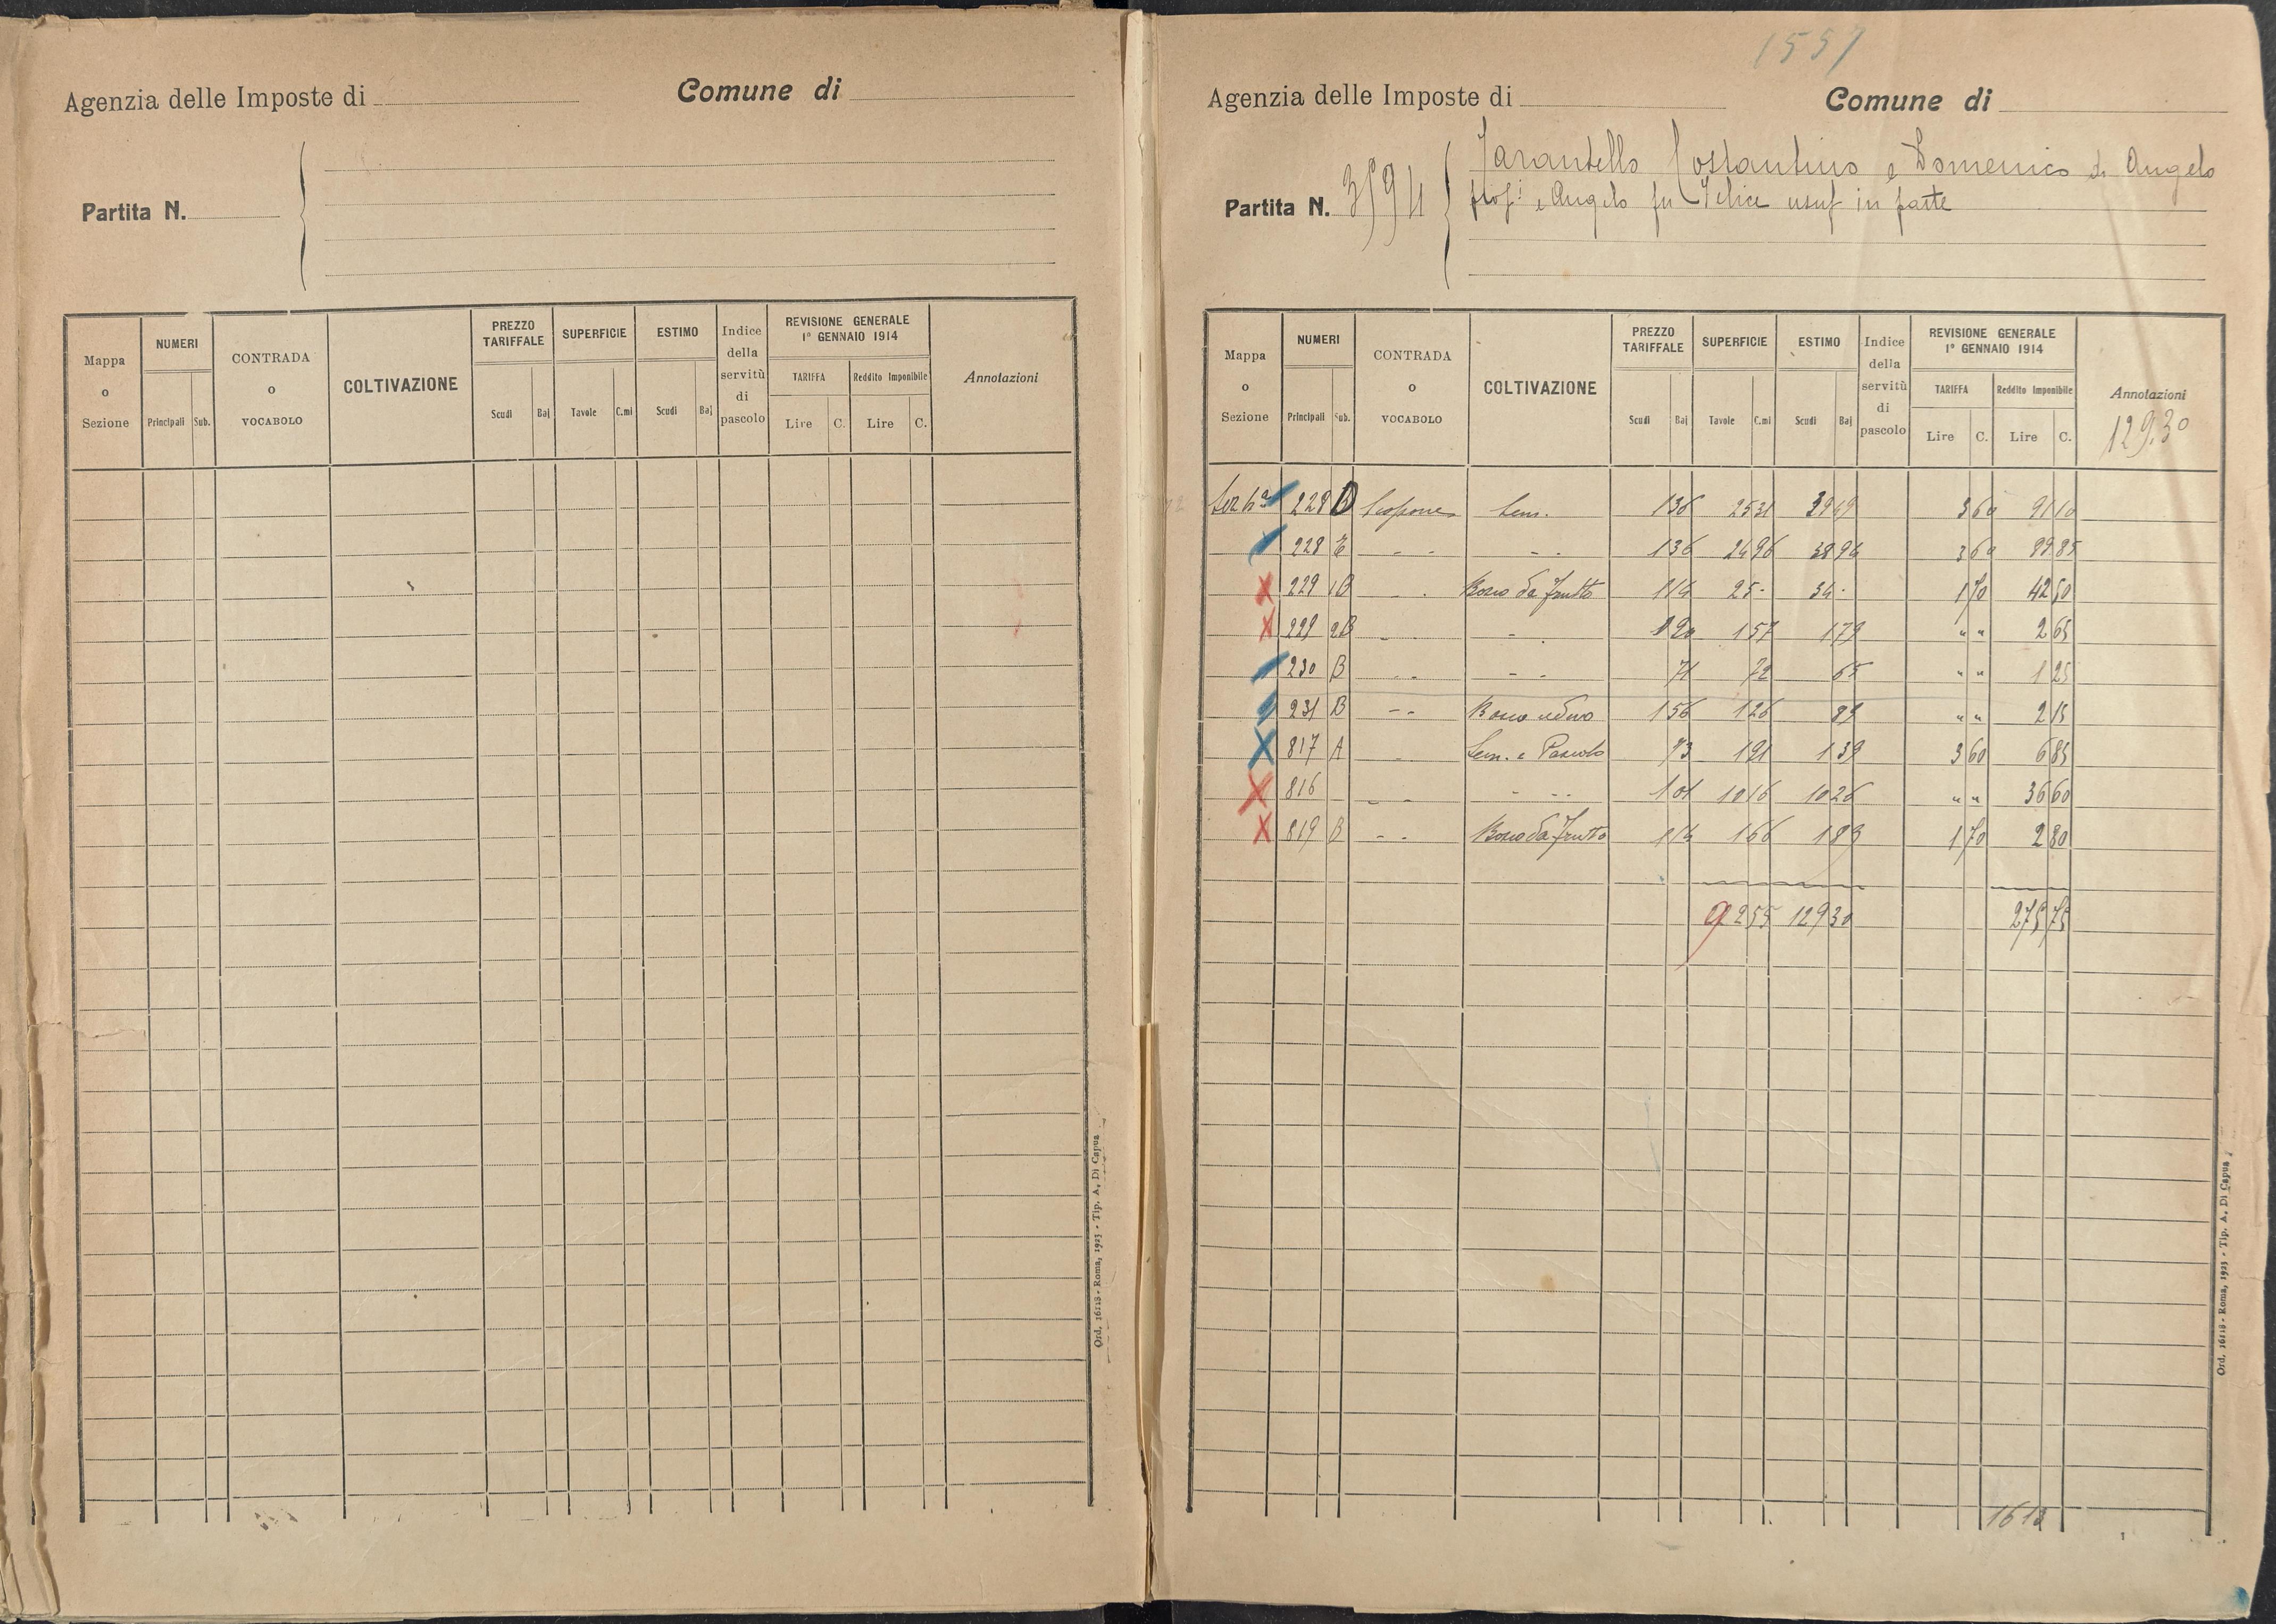 Agenzia delle Imposte di
Comune di
Partita N.
Mappa o Sezione
NUMERI
Principali Sub.
CONTRADA o VOCABOLO
COLTIVAZIONE
PREZZO TARIFFALE
Scudi Baj
SUPERFICIE
Tavole C.mi
ESTIMO
Scudi Baj
Indice della servitù di pascolo
REVISIONE GENERALE 1° GENNAIO 1914
TARIFFA
Lire C.
Reddito Imponibile
Lire C.
Annotazioni
Ord. 16118 - Roma, 1923 - Tip. A. Di Capua
1557
Agenzia delle Imposte di
Comune di
Partita N. 3594
Tarantello Costantino e Domenico di Angelo
prop.i e Angelo fu Felice usuf in parte
Mappa o Sezione
NUMERI
Principali Sub.
CONTRADA o VOCABOLO
COLTIVAZIONE
PREZZO TARIFFALE
Scudi Baj
SUPERFICIE
Tavole C.mi
ESTIMO
Scudi Baj
Indice della servitù di pascolo
REVISIONE GENERALE 1° GENNAIO 1914
TARIFFA
Lire C.
Reddito Imponibile
Lire C.
Annotazioni
129.30
Sez 6a 228 D Sem. 136 2531 3949 3 60 91 10
228 E - - - - 136 2496 3894 3 60 89 85
229 1B - - Bosco da frutto 114 25 - 34 - 1 70 42 50
229 2B - - - - 120 157 179 " " 2 65
230 B - - - - 71 72 65 " " 1 25
231 B - - Bosco ceduo 156 126 89 " " 2 15
817 A - - Sem. e Pascolo 73 191 139 3 60 6 85
816 - - - - 101 1016 1026 " " 36 60
819 B - - Bosco da frutto 114 166 189 1 70 2 80
9255 12930 275 75
1613
Ord. 16118 - Roma, 1923 - Tip. A. Di Capua